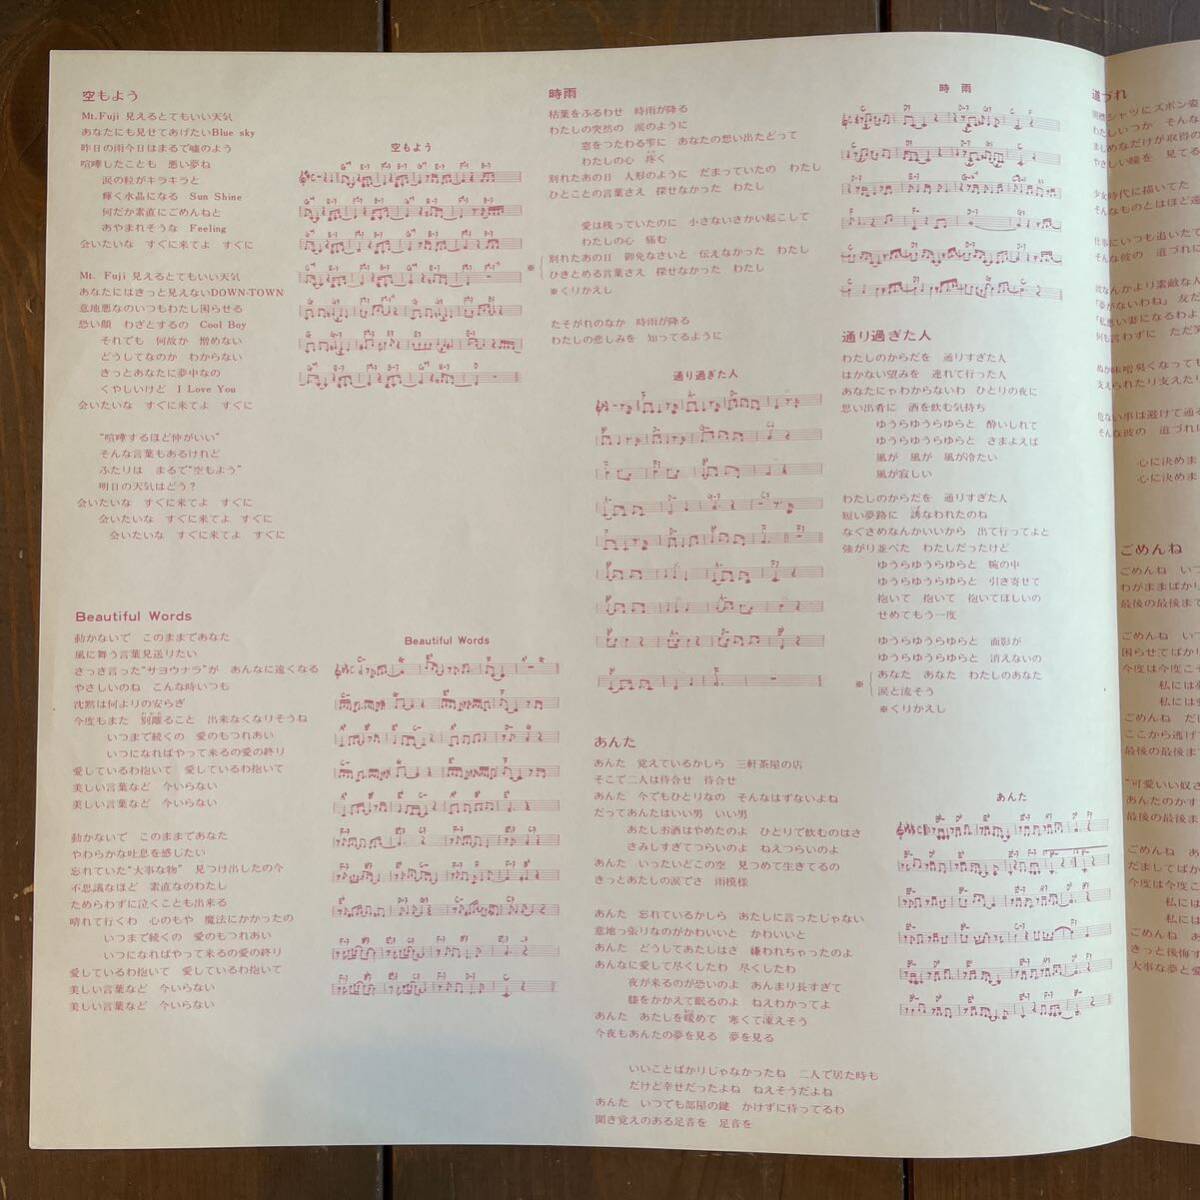 空もよう
Mt.Fuji 見えるとてもいい天気
あなたにも見せてあげたいBlue sky
昨日の雨今日はまるで嘘のよう
喧嘩したことも　悪い夢ね
涙の粒がキラキラと
輝く水晶になる　Sun Shine
何だか素直にごめんねと
あやまれそうな　Feeling
会いたいな　すぐに来てよ　すぐに
Mt. Fuji 見えるとてもいい天気
あなたにはきっと見えないDOWN-TOWN
意地悪なのいつもわたし困らせる
恐い顔　わざとするの　Cool Boy
それでも　何故か　憎めない
どうしてなのか　わからない
きっとあなたに夢中なの
くやしいけど　I Love You
会いたいな　すぐに来てよ　すぐに
“喧嘩するほど仲がいい”
そんな言葉もあるけれど
ふたりは　まるで“空もよう”
明日の天気はどう？
会いたいな　すぐに来てよ　すぐに
会いたいな　すぐに来てよ　すぐに
会いたいな　すぐに来てよ　すぐに
空もよう
Beautiful Words
動かないで　このままであなた
風に舞う言葉見送りたい
さっき言った“サヨウナラ”が　あんなに遠くなる
やさしいのね　こんな時いつも
沈黙は何よりの安らぎ
今度もまた　別離ること　出来なくなりそうね
いつまで続くの　愛のもつれあい
いつになればやって来るの愛の終り
愛しているわ抱いて　愛しているわ抱いて
美しい言葉など　今いらない
美しい言葉など　今いらない
動かないで　このままであなた
やわらかな吐息を感じたい
忘れていた“大事な物”　見つけ出したの今
不思議なほど　素直なのわたし
ためらわずに泣くことも出来る
晴れて行くわ　心のもや　魔法にかかったの
いつまで続くの　愛のもつれあい
いつになればやって来るの愛の終り
愛しているわ抱いて　愛しているわ抱いて
美しい言葉など　今いらない
美しい言葉など　今いらない
Beautiful Words
時雨
枯葉をふるわせ　時雨が降る
わたしの突然の　涙のように
窓をつたわる雫に　あなたの想い出たどって
わたしの心　疼く
別れたあの日　人形のように　だまっていたの　わたし
ひとことの言葉さえ　探せなかった　わたし
愛は残っていたのに　小さないさかい起こして
わたしの心　痛む
別れたあの日　御免なさいと　伝えなかった　わたし
※ ひきとめる言葉さえ　探せなかった　わたし
※くりかえし
たそがれのなか　時雨が降る
わたしの悲しみを　知ってるように
時　雨
通り過ぎた人
通り過ぎた人
わたしのからだを　通りすぎた人
はかない望みを　連れて行った人
あなたにゃわからないわ　ひとりの夜に
思い出肴に　酒を飲む気持ち
ゆうらゆうらゆらと　酔いしれて
ゆうらゆうらゆらと　さまよえば
風が　風が　風が冷たい
風が寂しい
わたしのからだを　通りすぎた人
短い夢路に　誘なわれたのね
なぐさめなんかいいから　出て行ってよと
強がり並べた　わたしだったけど
ゆうらゆうらゆらと　腕の中
ゆうらゆうらゆらと　引き寄せて
抱いて　抱いて　抱いてほしいの
せめてもう一度
ゆうらゆうらゆらと　面影が
ゆうらゆうらゆらと　消えないの
※ あなた　あなた　わたしのあなた
涙と流そう
※くりかえし
あんた
あんた　覚えているかしら　三軒茶屋の店
そこで二人は待合せ　待合せ
あんた　今でもひとりなの　そんなはずないよね
だってあんたはいい男　いい男
あたしお酒はやめたのよ　ひとりで飲むのはさ
さみしすぎてつらいのよ　ねえつらいのよ
あんた　いったいどこの空　見つめて生きてるの
きっとあたしの涙でさ　雨模様
あんた　忘れているかしら　あたしに言ったじゃない
意地っ張りなのがかわいいと　かわいいと
あんた　どうしてあたしはさ　嫌われちゃったのよ
あんなに愛して尽くしたわ　尽くしたわ
夜が来るのが恐いのよ　あんまり長すぎて
膝をかかえて眠るのよ　ねえわかってよ
あんた　あたしを暖めて　寒くて凍えそう
今夜もあんたの夢を見る　夢を見る
いいことばかりじゃなかったね　二人で居た時も
だけど幸せだったよね　ねえそうだよね
あんた　いつでも部屋の鍵　かけずに待ってるわ
聞き覚えのある足音を　足音を
あんた
道づれ
シャツにズボン姿
わたしいつか　そんな
まじめなだけが取得の
やさしい瞳を　見てる
少女時代に描いてた
そんなものとはほど遠
仕事にいつも追いたて
そんな彼の　道づれに
彼なんかより素敵な人
「夢がないわね」友だ
「私悪い妻になるわよ
何も言わずに　ただ
ぬか味噌臭くなっても
支えられたり支えたり
危ない事は避けて通る
そんな彼の　道づれに
心に決めま
心に決めま
ごめんね
ごめんね　いつ
わがままばかり
最後の最後まで
ごめんね　いつ
困らせてばかり
今度は今度こそ
私には
私には
ごめんね　だ
ここから逃げて
最後の最後まで
“可愛いい奴さ
あんたのかす
最後の最後ま
ごめんね　あ
だましてばか
今度は今度こ
私には
私には
ごめんね　あ
きっと後悔す
大事な夢と愛